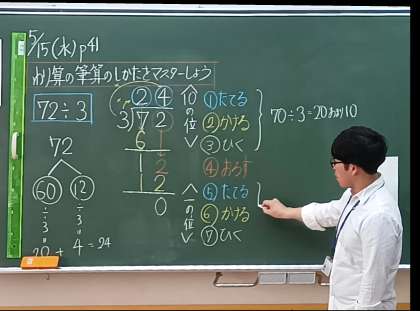 5/15(水)p41
わり算の筆算のしかたをマスターしよう
72÷3
72
60 12
÷ ÷
3 3
= =
20 + 4 = 24
24
3)72
6
12
12
0
<十の位>
①たてる
②かける
③ひく
④おろす
<一の位>
⑤たてる
⑥かける
⑦ひく
70÷3=20あまり10